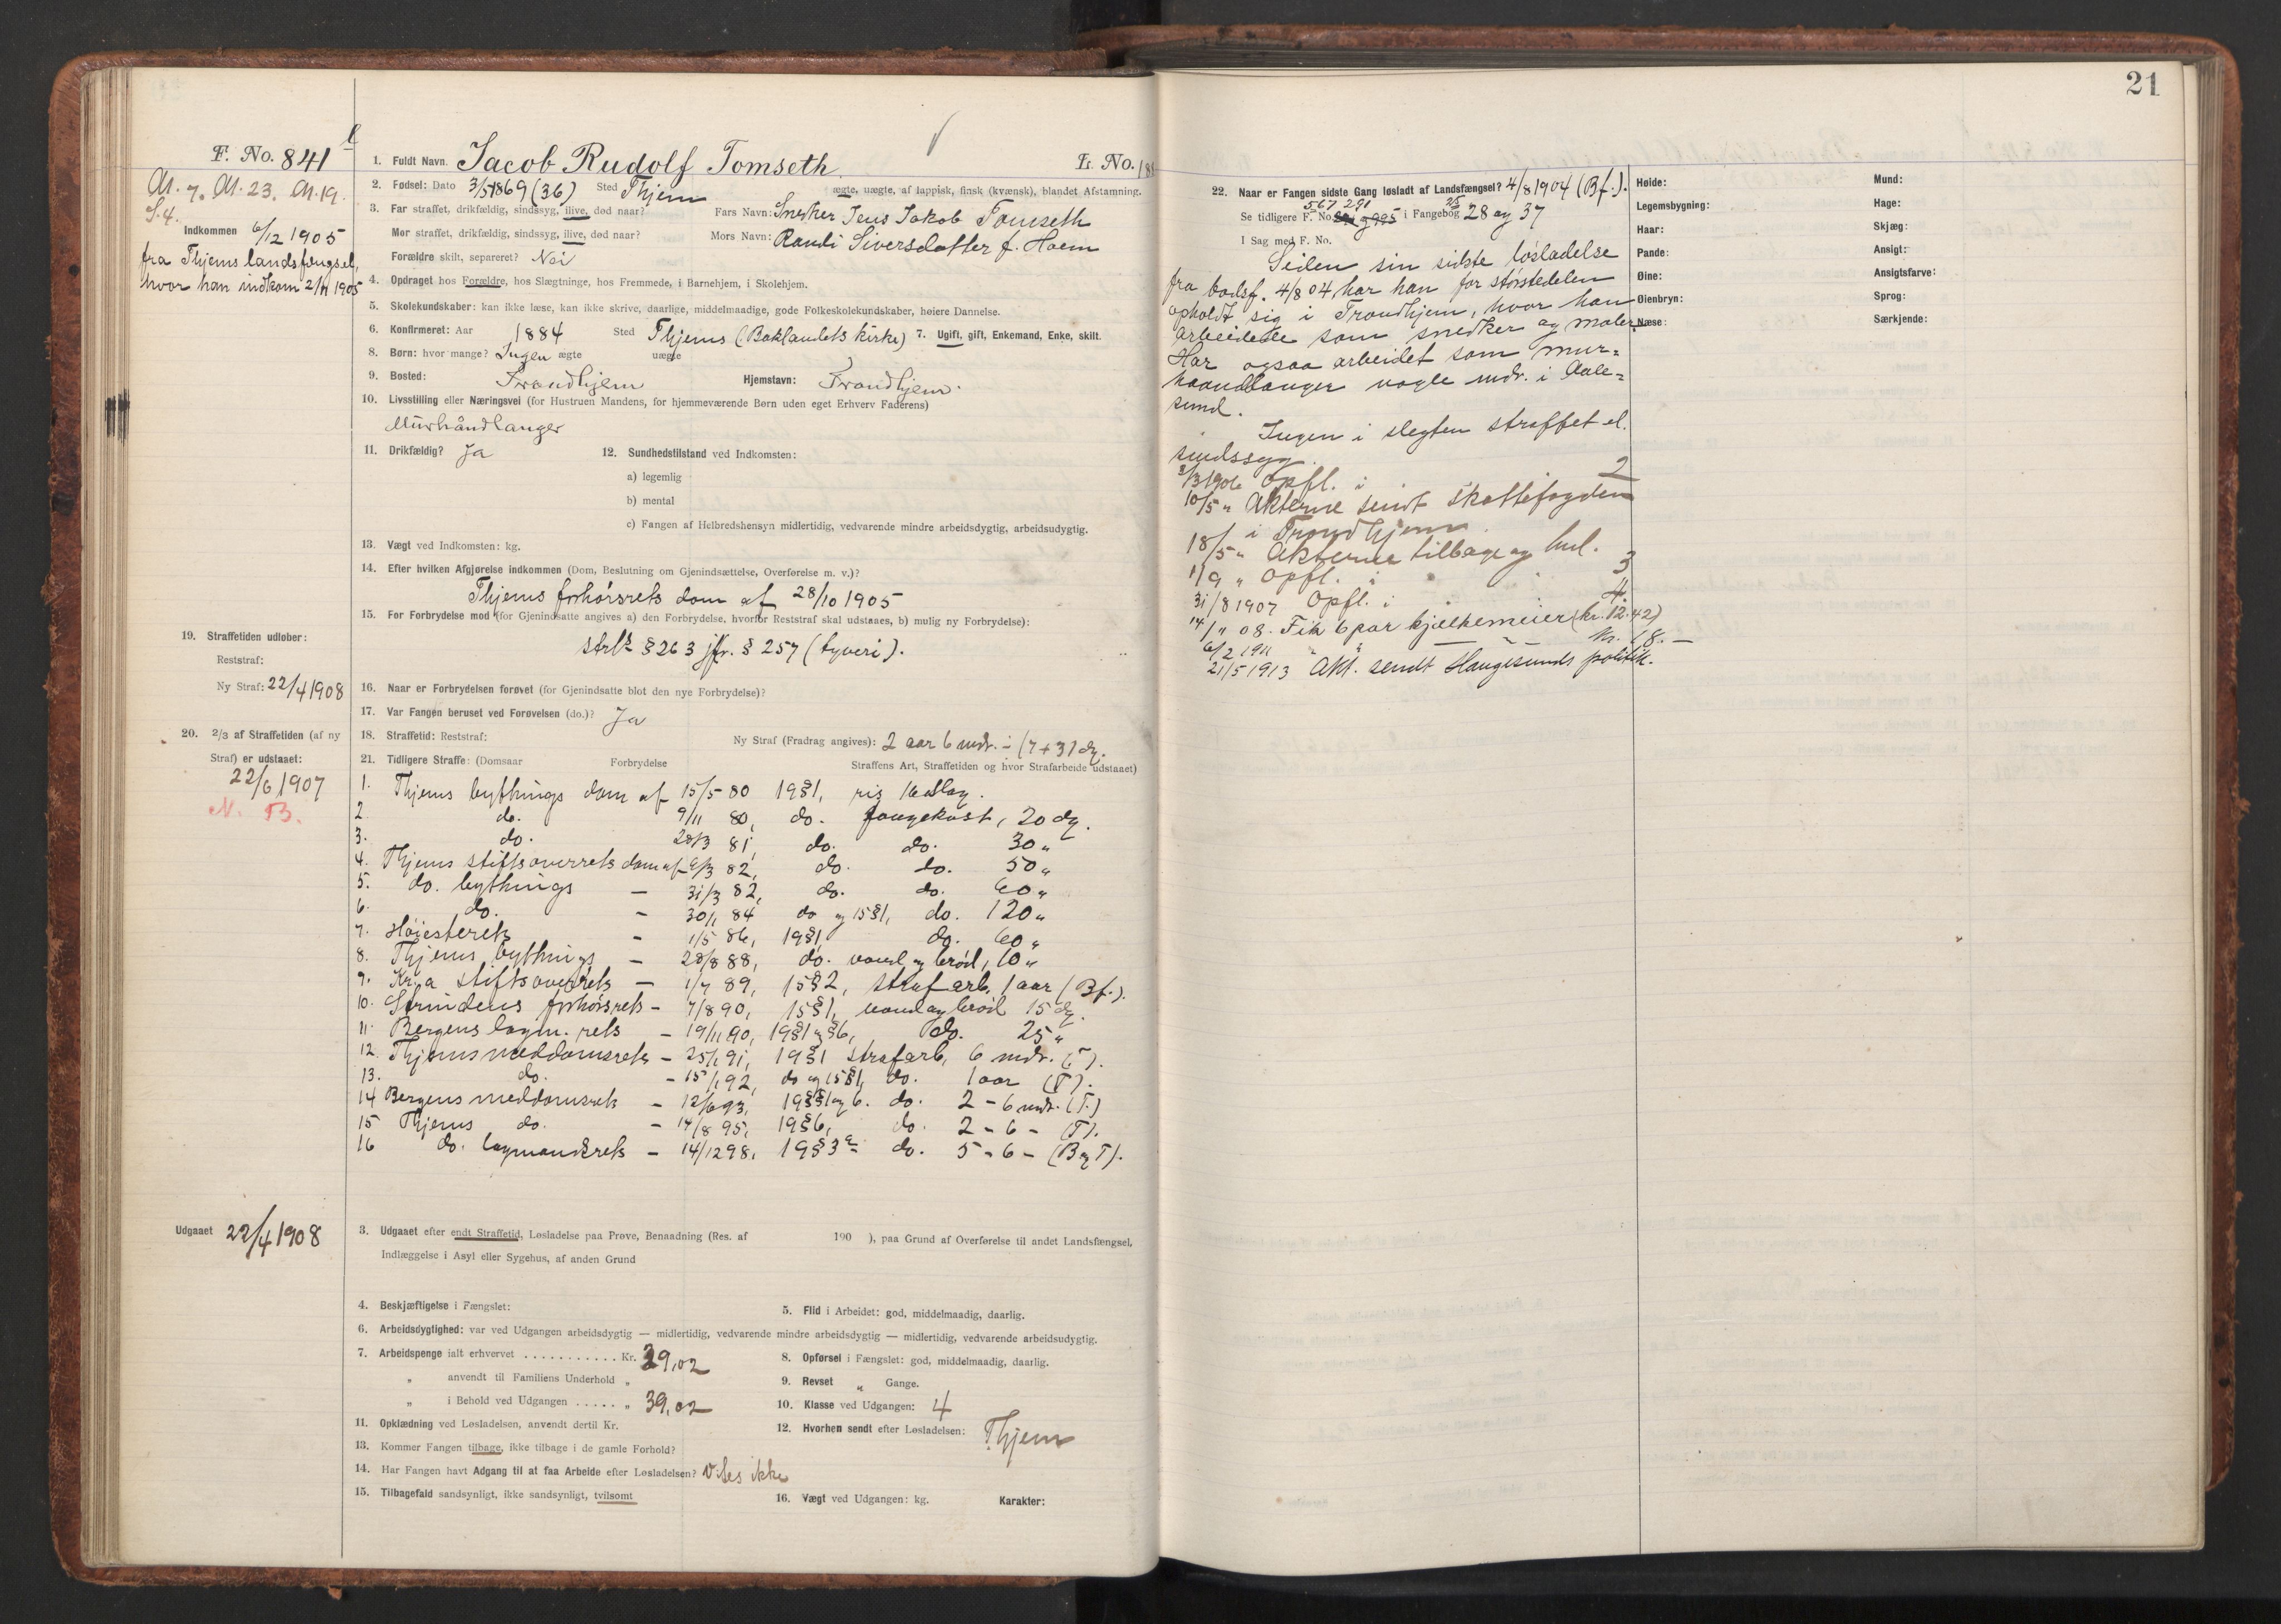 21
F. No. 841
1. Fuldt Navn. Jacob Rudolf Tomseth.
L. No.
M. 7. M. 23. M. 19.
S. 4.
Indkommen 6/12 1905
fra Thjems landsfængsel,
hvor han indkom 2/11 1905
2. Fødsel: Dato 3/5 1869 (36) Sted Thjem ægte, uægte, af lappisk, finsk (kvænsk), blandet Afstamning.
3. Far straffet, drikfældig, sindssyg, ilive, død naar? Fars Navn: Snedker Jens Jakob Tomseth
Mor straffet, drikfældig, sindssyg, ilive, død naar? Mors Navn: Randi Siversdatter f. Hoem
Forældre skilt, separeret? Nei
4. Opdraget hos Forældre, hos Slægtninge, hos Fremmede, i Barnehjem, i Skolehjem.
5. Skolekundskaber: kan ikke læse, kan ikke skrive, daarlige, middelmaadige, gode Folkeskolekundskaber, høiere Dannelse.
6. Konfirmeret: Aar 1884 Sted Thjems (Baklandets kirke) 7. Ugift, gift, Enkemand, Enke, skilt.
8. Børn: hvor mange? Ingen ægte uægte
9. Bosted: Trondhjem Hjemstavn: Trondhjem.
10. Livsstilling eller Næringsvei (for Hustruen Mandens, for hjemmeværende Børn uden eget Erhverv Faderens)
Murhåndlanger
11. Drikfældig? Ja 12. Sundhedstilstand ved Indkomsten:
a) legemlig
b) mental
c) Fangen af Helbredshensyn midlertidig, vedvarende mindre arbeidsdygtig, arbeidsudygtig.
13. Vægt ved Indkomsten: kg.
14. Efter hvilken Afgjørelse indkommen (Dom, Beslutning om Gjenindsættelse, Overførelse m. v.)?
Thjems forhørsrets dom af 28/10 1905
15. For Forbrydelse mod (for Gjenindsatte angives a) den Forbrydelse, hvorfor Reststraf skal udstaaes, b) mulig ny Forbrydelse):
strl's § 263 jfr. § 257 (tyveri).
19. Straffetiden udløber:
Reststraf:
Ny Straf: 22/4 1908
16. Naar er Forbrydelsen forøvet (for Gjenindsatte blot den nye Forbrydelse)?
17. Var Fangen beruset ved Forøvelsen (do.)? Ja
20. 2/3 af Straffetiden (af ny
Straf) er udstaaet:
22/6 1907
N. B.
18. Straffetid: Reststraf: Ny Straf (Fradrag angives): 2 aar 6 mdr. ÷ (7 + 3) dg.
21. Tidligere Straffe: (Domsaar Forbrydelse Straffens Art, Straffetiden og hvor Strafarbeide udstaaet)
1. Thjems bythings dom af 15/5 80 19§1, ris 16 slag.
2. do. 9/11 80, do. fangekost, 20 dg.
3. do. 28/3 81, do. do. 30 "
4. Thjems stiftsoverrets dom af 6/3 82, do. do. 50 "
5. do. bythings — 31/3 82, do. do. 60 "
6. do. — 30/1 84 do og 15§1, do. 120 "
7. Høiesterets — 1/5 86, 19§1, do. 60 "
8. Thjems bythings — 28/8 88, do. vand og brød, 10 "
9. Kr.a stiftsoverrets — 1/7 89, 15§2, strafarb. 1 aar (Bf.).
10. Strindens forhørsrets — 7/8 90, 15§1, vand og brød 15 dg.
11. Bergens lagm. rets — 19/11 90, 19§1 og §6, do. 25 "
12. Thjems meddomsrets — 25/1 91, 19§1 strafarb, 6 mdr. (T).
13. do. — 15/1 92, do og 15§1, do. 1 aar (T).
14 Bergens meddomsrets — 12/6 93, 19§§1 og 6. do. 2 - 6 mdr. (T.)
15 Thjems do. — 14/8 95, 19§6, do. 2 - 6 - (T).
16 do. lagmandsrets — 14/12 98, 19§3 do. 5 - 6 - (B og T).
Udgaaet 22/4 1908
3. Udgaaet efter endt Straffetid, Løsladelse paa Prøve, Benaadning (Res. af 190 ), paa Grund af Overførelse til andet Landsfængsel,
Indlæggelse i Asyl eller Sygehus, af anden Grund
4. Beskjæftigelse i Fængslet: 5. Flid i Arbeidet: god, middelmaadig, daarlig.
6. Arbeidsdygtighed: var ved Udgangen arbeidsdygtig — midlertidig, vedvarende mindre arbeidsdygtig — midlertidig, vedvarende arbeidsudygtig.
7. Arbeidspenge ialt erhvervet ........... Kr. 39,02 8. Opførsel i Fængslet: god, middelmaadig, daarlig.
" anvendt til Familiens Underhold " 9. Revset " Gange.
" i Behold ved Udgangen ..... " 39,02 10. Klasse ved Udgangen: 4
11. Opklædning ved Løsladelsen, anvendt dertil Kr. 12. Hvorhen sendt efter Løsladelsen: Thjem
13. Kommer Fangen tilbage, ikke tilbage i de gamle Forhold?
14. Har Fangen havt Adgang til at faa Arbeide efter Løsladelsen? Vides ikke
15. Tilbagefald sandsynligt, ikke sandsynligt, tvilsomt 16. Vægt ved Udgangen: kg. Karakter:
22. Naar er Fangen sidste Gang løsladt af Landsfængsel? 4/8 1904 (Bf.).
567 291 25
Se tidligere F. No. i Fangebog 28 og 37
I Sag med F. No.
Siden sin sidste løsladelse
fra bodsf. 4/8 04 har han for størstedelen
opholdt sig i Trondhjem, hvor han
arbeidede som snedker og maler.
Har ogsaa arbeidet som mur-
haandlanger nogle mdr. i Aale-
sund.
Ingen i slegten straffet el.
sindssyg.
2/3 1906 Opfl. i 2
10/5 " Akterne sendt skattefogden
i Trondhjem.
18/5 " Akterne tilbage og hul.
1/9 " Opfl. i 3
31/8 1907 Opfl. i 4.
14/1 08. Fik 6 par kjælkemeier (kr. 12.42)
6/2 1911 " " — kr. 18. —
21/5 1913 Akt. sendt Haugesunds politik.
Høide:
Legemsbygning:
Haar:
Pande:
Øine:
Øienbryn:
Næse:
Mund:
Hage:
Skjæg:
Ansigt:
Ansigtsfarve:
Sprog:
Særkjende: